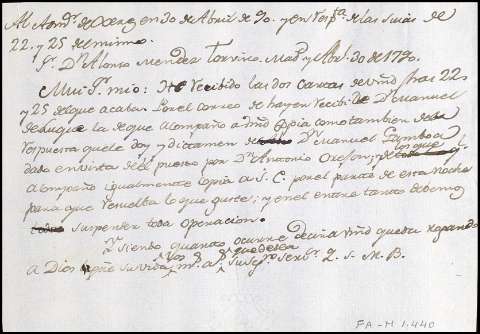 Al Admōr. de Xerez en 30 de Abril de 90. y en respta. de las suias de
22. y 25 del mismo.
Sr. Dn. Alonso Mendez Torvico. Madd. y Abril 30 de 1790.
Mui Sr. mio: He recibido las dos Cartas de Vmd fhas 22
y 25 del que acaba. Por el correo de hoy en recibi de Dn. Manuel
de Luque la de que acompaño a Vmd copia como tambien de la
respuesta que le doy y dictamen de Dn. Manuel Gamboa
dado en vista de el puesto por Dn. Antonio los que
acompaño igualmente copia a S. E. por el parte de esta noche
para que resuelba lo que guste; y en el entre tanto devemos
suspender toda operacion.
Y siendo quanto ocurre decir a Vmd quedo rogando
a Dios gūe su vida ms. as. Vos S. que desea su segro. serbr. Q. S. M. B.
FA-M 1.440